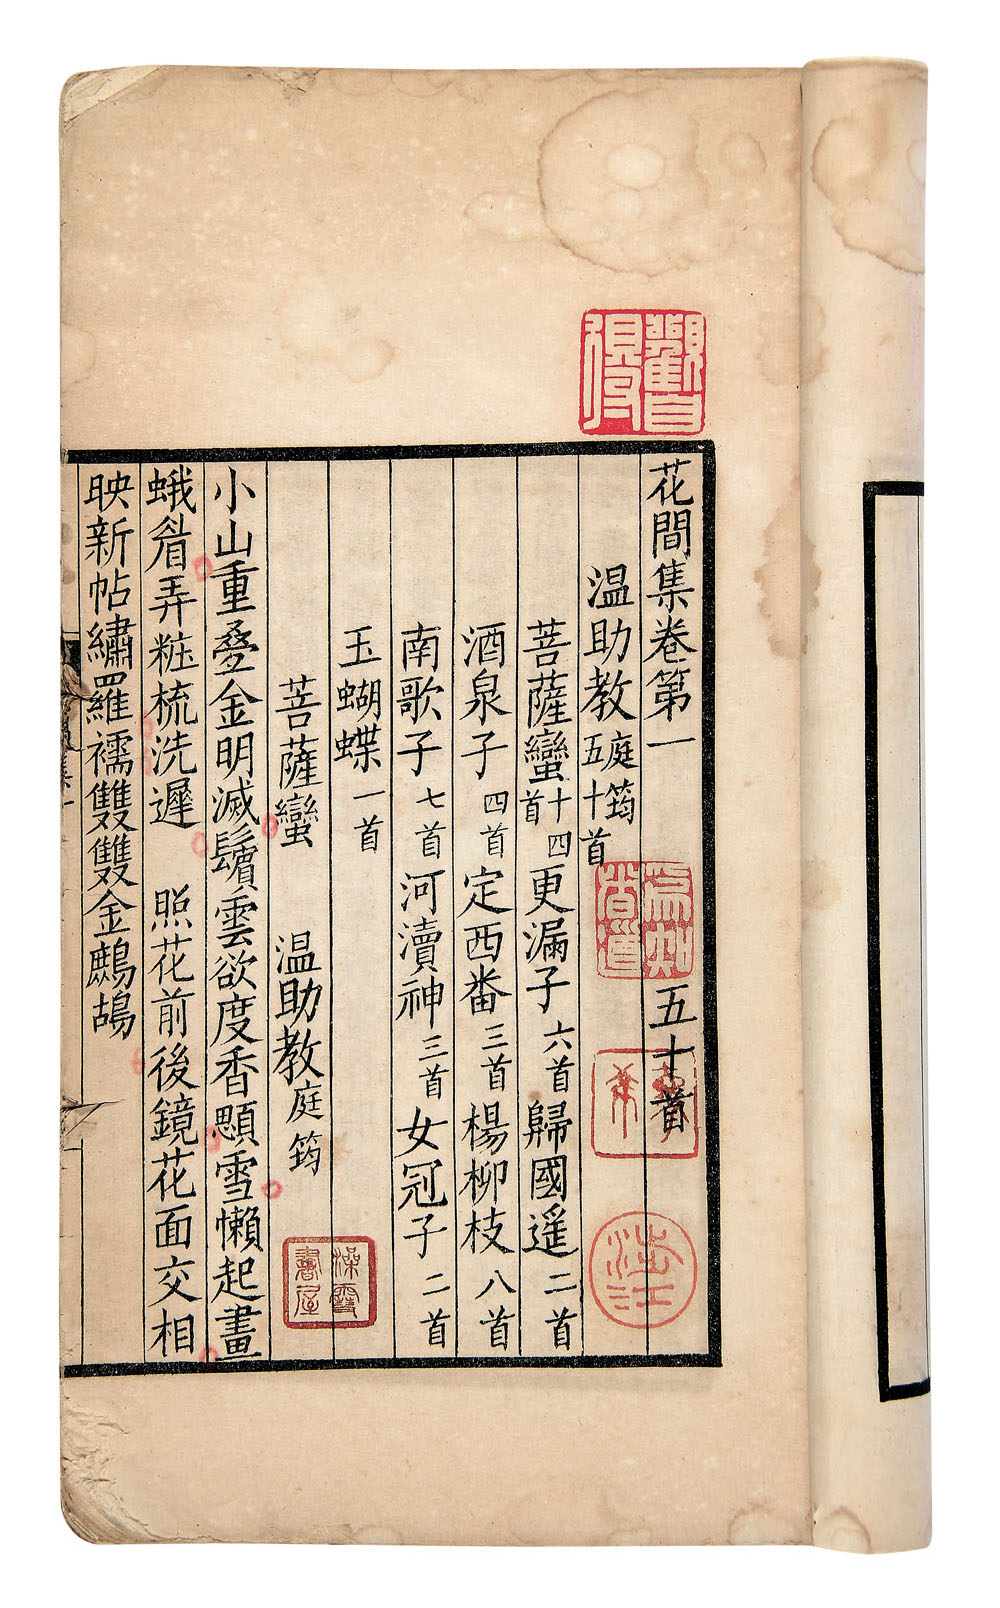 花間集卷第一 五十首
温助教庭筠五十首
菩薩蠻十四首更漏子六首歸國遥二首
酒泉子四首定西番三首楊柳枝八首
南歌子七首河瀆神三首女冠子二首
玉蝴蝶一首
菩薩蠻 温助教庭筠
小山重疊金明滅鬢雲欲度香顋雪懶起畫
蛾眉弄粧梳洗遲 照花前後鏡花面交相
映新帖繡羅襦雙雙金鷓鴣